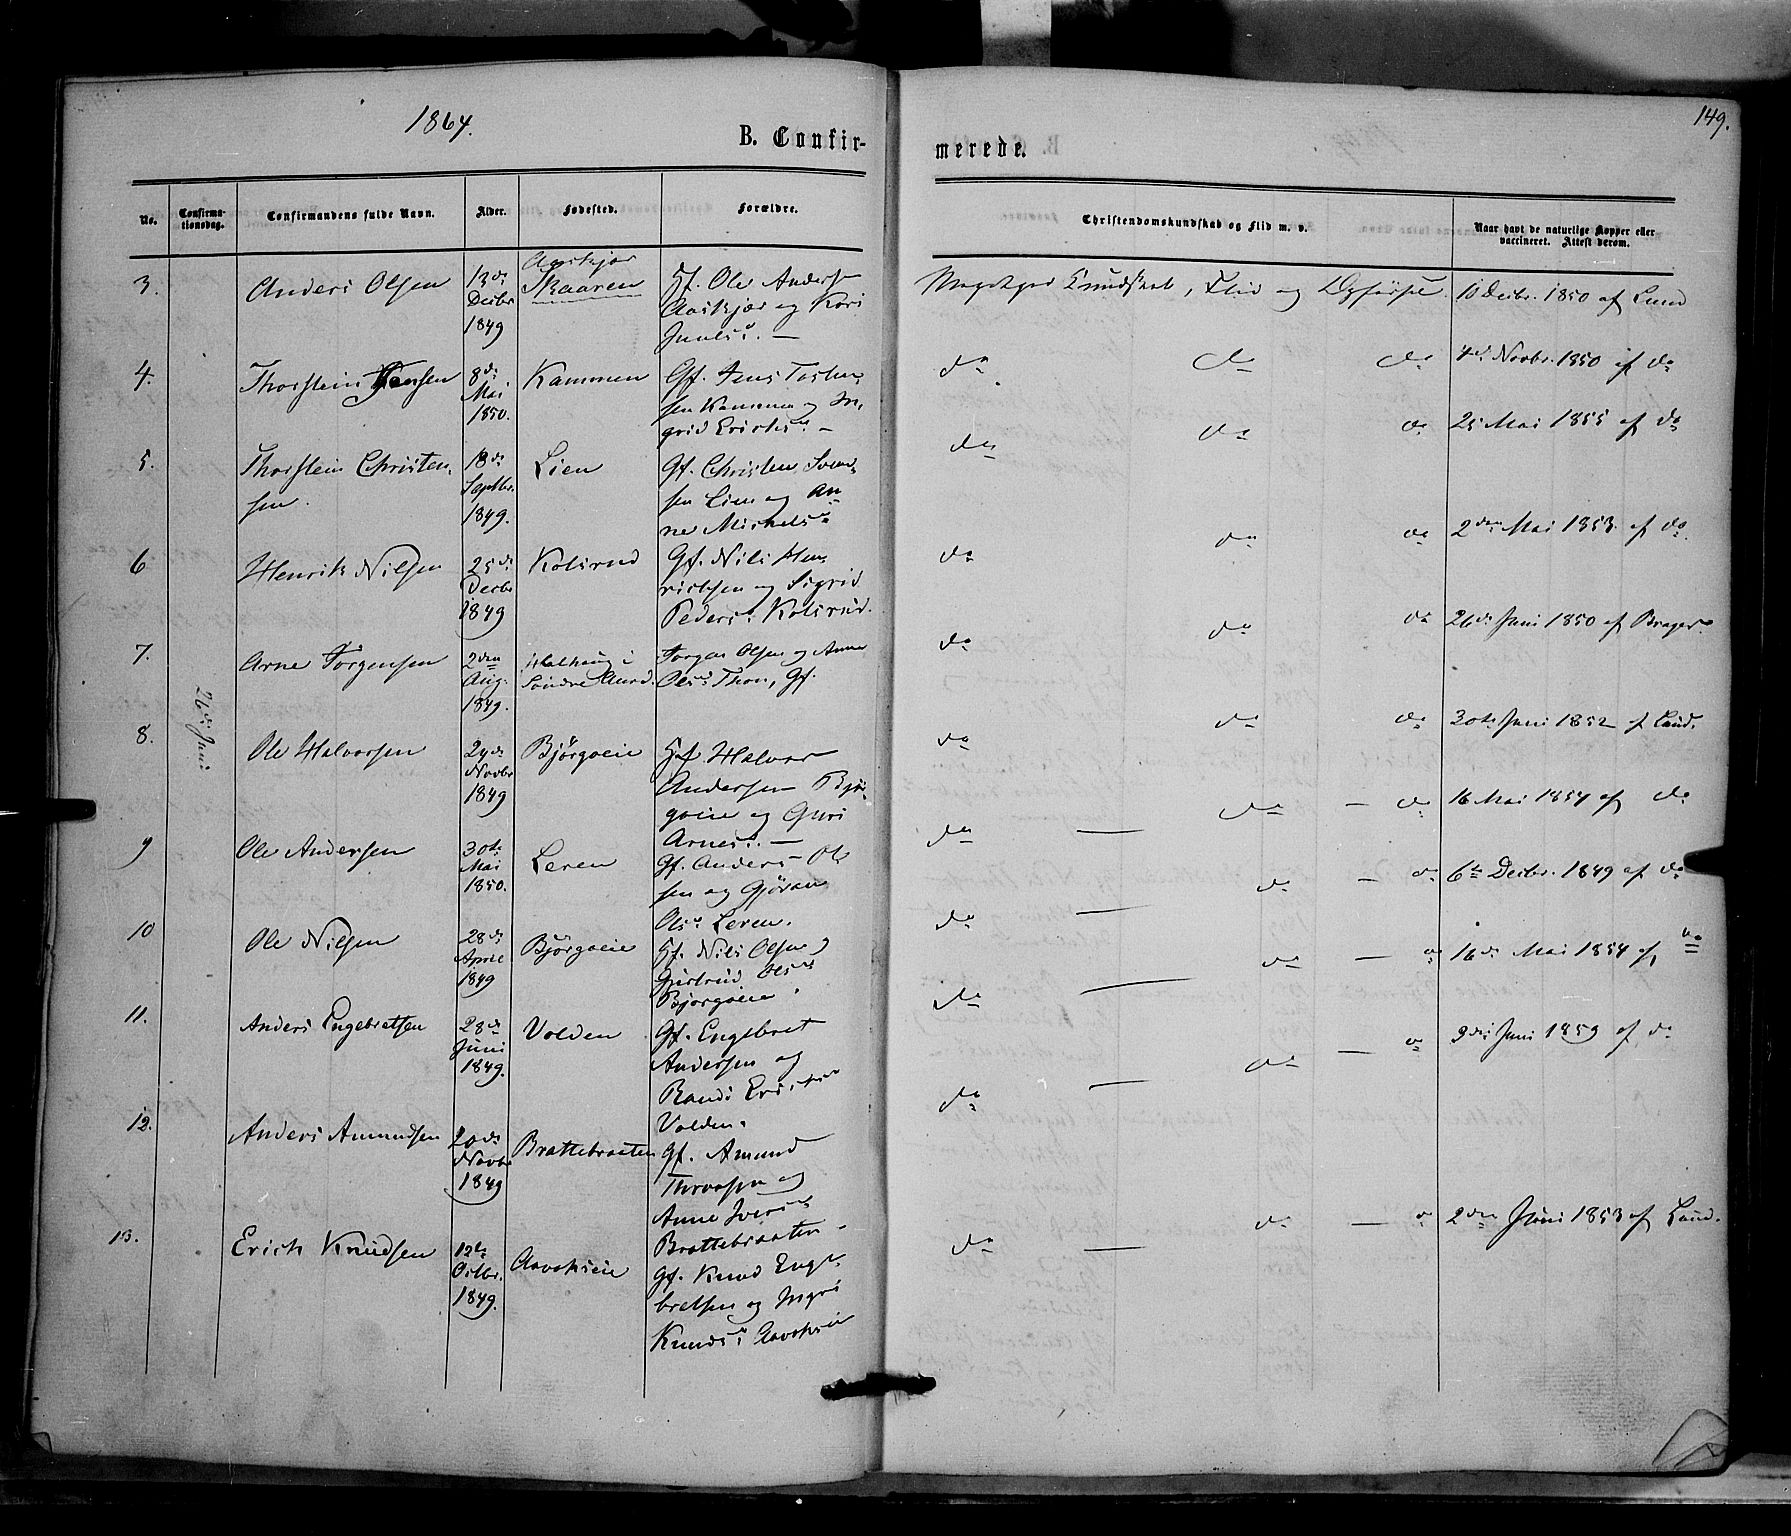 1864.
149.
B. Confir-
merede.
No.
Confirma-
tionsdag.
Confirmandens fulde Navn.
Alder.
Fødested.
Forældre.
Christendomskundskab og Flid m. v.
Naar havt de naturlige Kopper eller
vaccineret. Attest derom.
26de Juni
3. Anders Olsen 13de Aaskjær Gf. Ole Anders
Decbr Skaaren Aaskjær og Kari
1849
Kundskab, Flid og Opførsel. 10 Decbr. 1850 af Lund
4. Thorstein Jensen 8de Kammen Gf. Jens Tosten
Mai sen Kammen og In
1850. grid Erichs. –
do do do 4de Novbr. 1850 af do
5. Thorstein Christen 18de Lien Gf. Christen Svend
sen. Septbr. sen Lien og An
1849. ne Michels
do do do 25 Mai 1855 af do
6 Henrik Nilsen 25de Kolsrud Gf. Nils Hen
Decbr richsen og Sigrid
1849 Peders. Kolsrud.
do do do 2den Mai 1853 af do.
7. Arne Torgersen 2den i Torger Olsen og Anne
Aug. Søndre Aurd. Ols. Thon, Gf.
1849.
do do do 26de Juni 1850 af
8. Ole Halvorsen 24de Bjørgoeie Gf. Halvor
Novbr Andersen Bjør
1849 goeie og Guri
Arnes. –
do do do 30te Juni 1852 af Lund.
9 Ole Andersen 30te Leren Gf. Anders Ol
Mai sen og Gjøran
1850. Ols. Leren.
do — do — do 16 Mai 1854 af do
10 Ole Nilsen 28de Bjørgoeie Gf. Nils Olsen og
April Gjertrud Ols
1849 Bjørgoeie.
do — do — do 6te Decbr. 1849 af do
11. Anders Engebretsen 28de Volden Gf. Engebret
Juni Andersen og
1849. Randi Erichs
Volden.
do — do — do 16de Mai 1854 af do
12. Anders Amundsen 20de Brattebraaten Gf. Amund
Novbr og
1849 Anne Ivers
Brattebraaten –
do — do — do 9de Juni 1859 af do
13. Erich Knudsen 12te Gf. Knud Enge
Octbr. bretsen og Ingri
1849. Knuds
do — do — do 2den Juni 1853 af Lund.